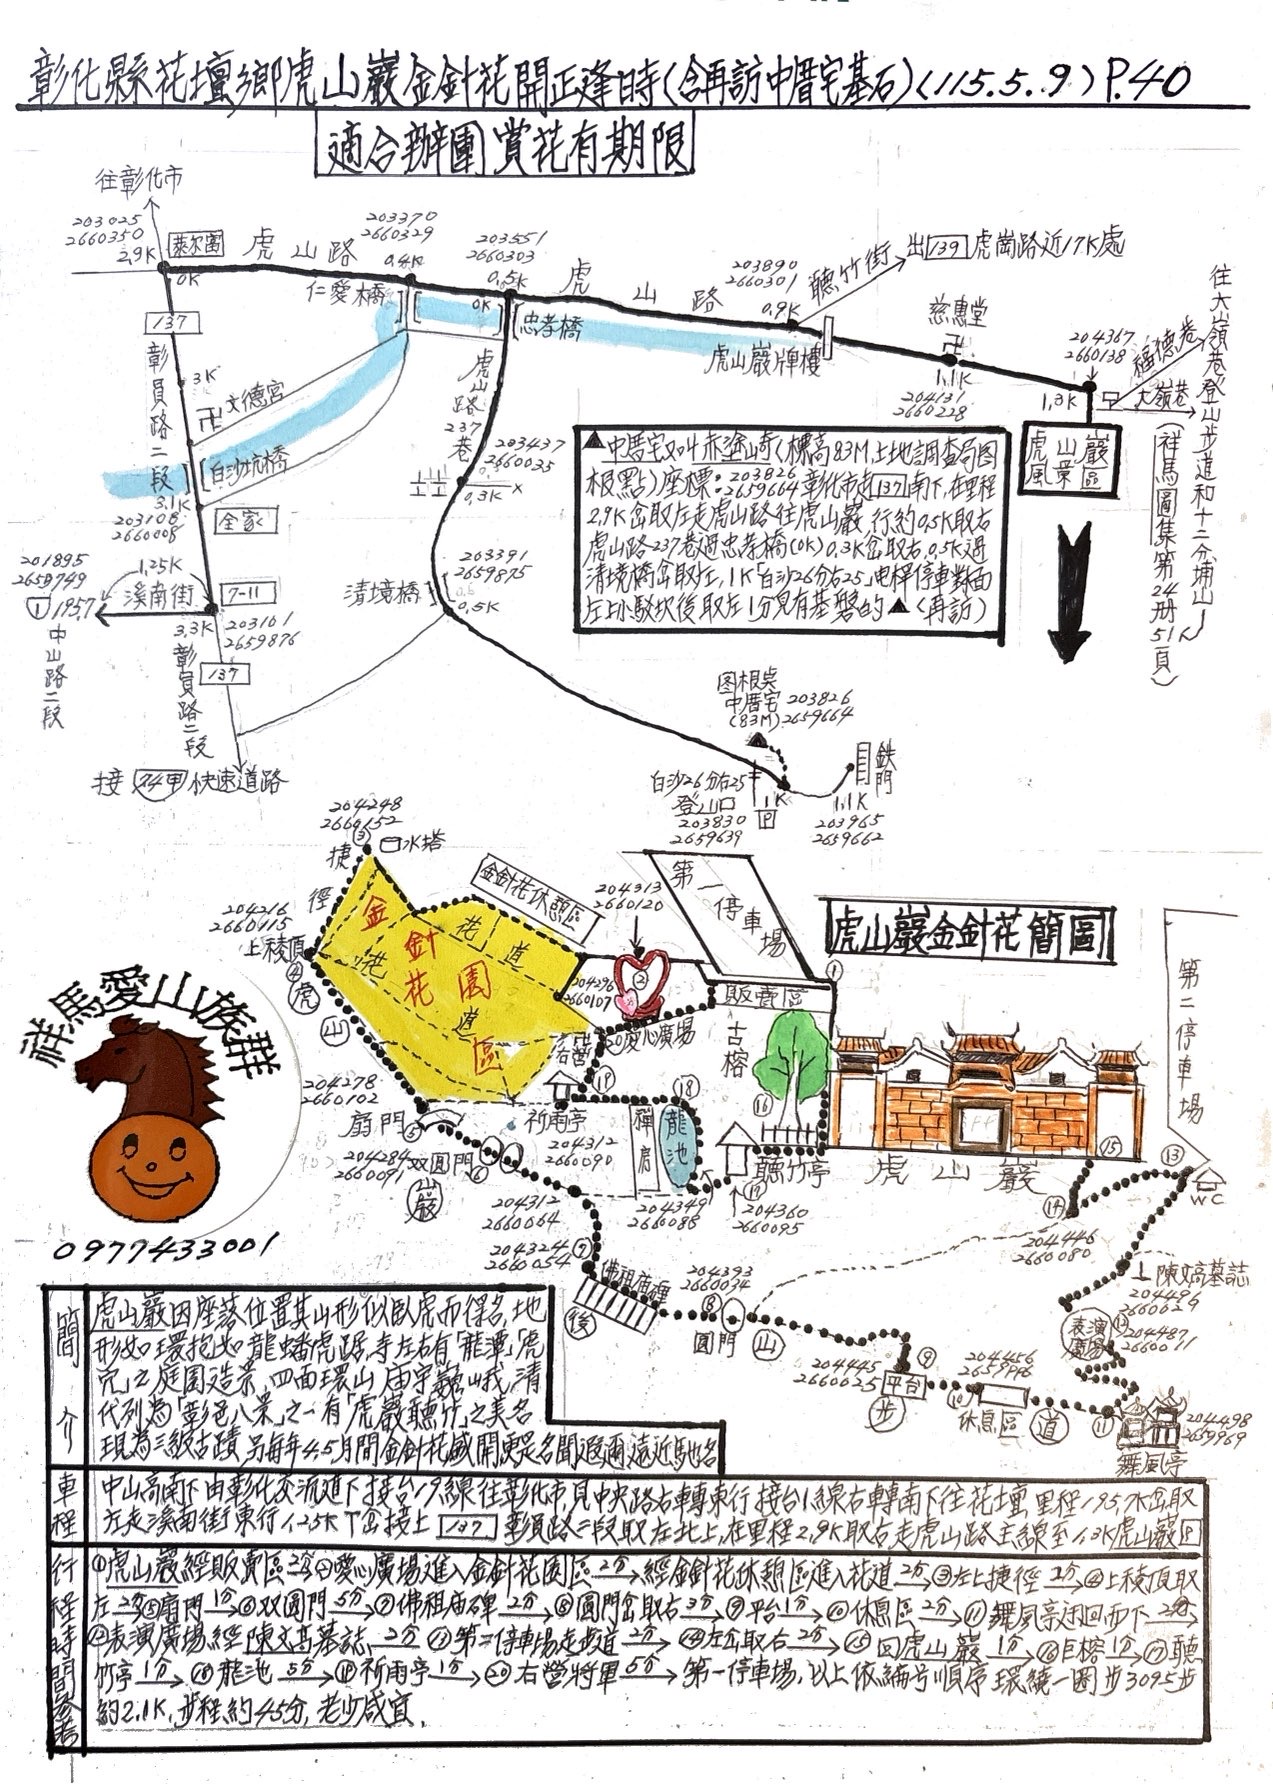 彰化縣花壇鄉虎山巖金針花開正逢時(含再訪中厝宅基石)(115.5.9)P.40
適合辦團賞花有期限
往彰化市
203025
2660350
2.9K
萊尔富
0K
虎山路
203370
2660329
0.4K
仁愛橋
203551
2660303
0.5K
0K
忠孝橋
虎山路
203890
2660301
0.9K
聽竹街
出139虎崗路近17K處
虎山巖牌樓
慈惠堂
卍
1.1K
204131
2660228
204367
2660138
1.3K
福德巷
大嶺巷
往大嶺巷登山步道和十二分埔山
(祥馬圖集第24册51頁)
虎山巖
風景區
137
彰員路二段
3K
卍文德宮
白沙坑橋
3.1K
203108
2660008
全家
201895
2659749
1 195.7
中山路二段
1.25K
溪南街
7-11
3.3K
203101
2659876
137
彰員路二段
接 74甲 快速道路
虎山路237巷
203437
2660035
0.3K
203391
2659875
清境橋
0.5K
▲中厝宅又叫赤塗崎(標高83M土地調查局图
根點)座標:203826 2659664彰化市走137南下,在里程
2.9K岔取左走虎山路往虎山巖 行約0.5K取右
虎山路237巷過忠孝橋(0K)0.3K岔取右,0.5K過
清境橋岔取左,1K「白沙26分右25」电桿停車對面
左上小駁坎後取左1分見有基磐的▲(再訪)
图根點
中厝宅
(83M)
203826
2659664
白沙26分右25
登山口
203830
2659639
1K
P
鉄門
1.1K
203965
2659662
虎山巖金針花簡圖
204248
2660152
③
水塔
捷徑
204216
2660115
上稜頂
④
虎
山
金針花園區
花道
花道
金針花休憩區
204313
2660120
②
204296
2660107
愛心廣場
⑳
右營
第一停車場
①
販賣區
古榕
⑯
204278
2660102
扇門
⑤
204284
2660091
双圓門
⑥
山巖
祈雨亭
⑲
204312
2660090
禪房
龍池
⑱
204349
2660088
聽竹亭
⑰
204360
2660095
虎山巖
⑮
⑭
204446
2660080
⑬
WC
第二停車場
204312
2660064
204324
2660054
⑦
佛祖庙碑
後
204393
2660034
⑧
圓門
山
204445
2660025
⑨
平台
步
204456
2659996
⑩
休息區
道
⑪
204498
2659969
舞風亭
陳文高墓誌
204496
2660029
⑫
表演廣場
204487
2660011
祥馬愛山族群
0977433001
簡介
虎山巖因座落位置其山形似臥虎而得名,地
形如環抱如龍蟠虎踞,寺左右有「龍潭」「虎
穴」之庭園造景,四面環山庙宇巍峨,清
代列為「彰邑八景」之一有「虎巖聽竹」之美名
現為三級古蹟 另每年4.5月間金針花盛開更是名聞遐邇遠近馳名
車程
中山高南下由彰化交流道下接台19線往彰化市,見中央路右轉東行接台1線右轉南下往花壇,里程195.7K岔取
左走溪南街東行1.25K丁岔接上137彰員路二段取左北上,在里程2.9K取右走虎山路主線至1.3K虎山巖P
行程時間參考
①虎山巖經販賣區2分→②愛心廣場進入金針花園區2分→經金針花休憩區進入花道2分→③左上捷徑2分→④上稜頂取
左2分→⑤扇門1分→⑥双圓門5分→⑦佛祖庙碑2分→⑧圓門岔取右3分→⑨平台1分→⑩休息區2分→⑪舞風亭迂回而下2分→
⑫表演廣場經陳文高墓誌2分→⑬第二停車場走步道2分→⑭左岔取右2分→⑮回虎山巖1分→⑯巨榕1分→⑰聽
竹亭1分→⑱龍池5分→⑲祈雨亭1分→⑳右營將軍5分→第一停車場,以上依編号順序環繞一圈步3095步
約2.1K,步程約45分,老少咸宜.